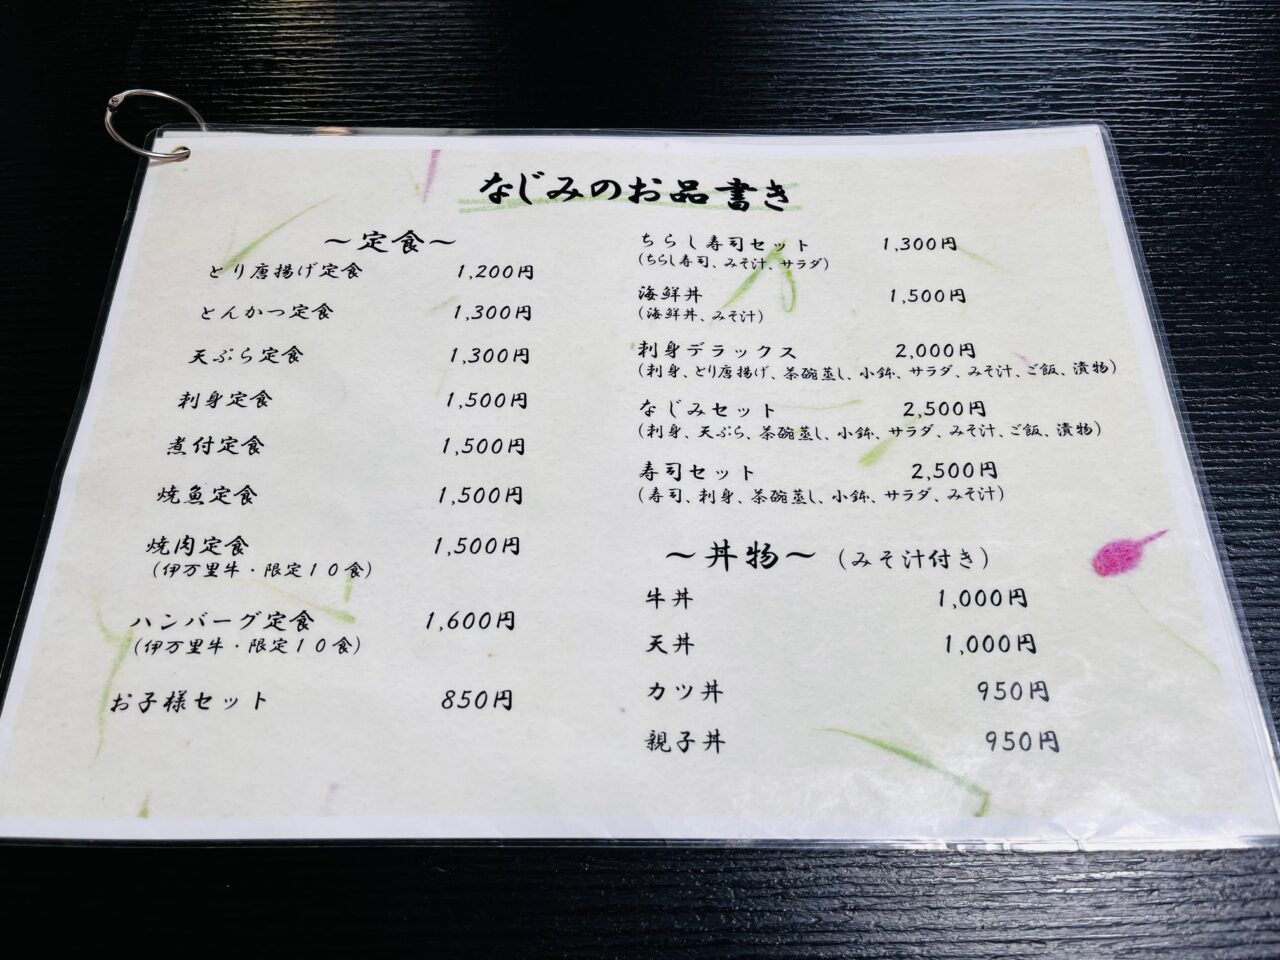 なじみのお品書き
～定食～
とり唐揚げ定食 1,200円
とんかつ定食 1,300円
天ぷら定食 1,300円
刺身定食 1,500円
煮付定食 1,500円
焼魚定食 1,500円
焼肉定食 1,500円
（伊万里牛・限定１０食）
ハンバーグ定食 1,600円
（伊万里牛・限定１０食）
お子様セット 850円
ちらし寿司セット 1,300円
（ちらし寿司、みそ汁、サラダ）
海鮮丼 1,500円
（海鮮丼、みそ汁）
刺身デラックス 2,000円
（刺身、とり唐揚げ、茶碗蒸し、小鉢、サラダ、みそ汁、ご飯、漬物）
なじみセット 2,500円
（刺身、天ぷら、茶碗蒸し、小鉢、サラダ、みそ汁、ご飯、漬物）
寿司セット 2,500円
（寿司、刺身、茶碗蒸し、小鉢、サラダ、みそ汁）
～丼物～（みそ汁付き）
牛丼 1,000円
天丼 1,000円
カツ丼 950円
親子丼 950円